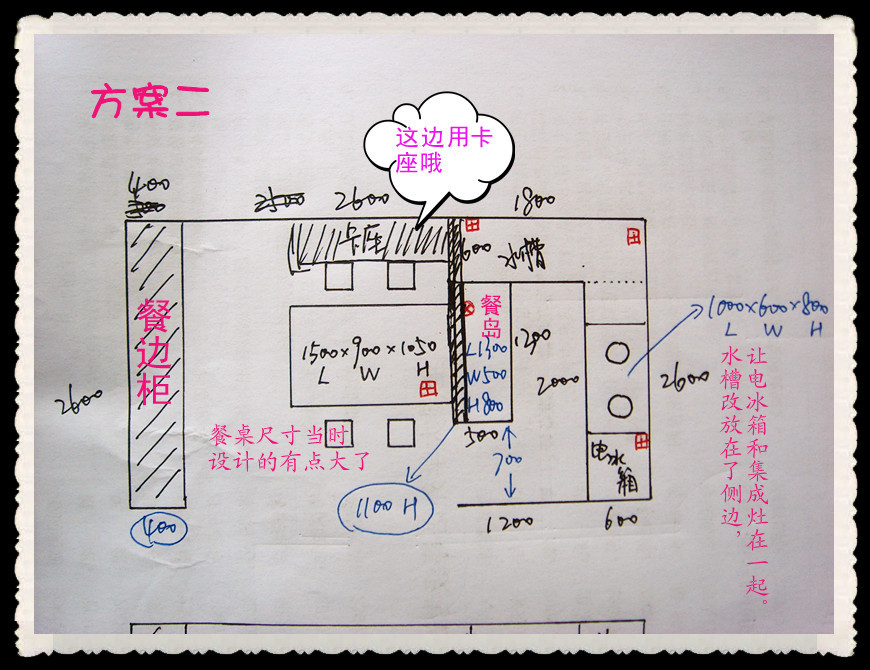 方案二
这边用卡
座哦
400
2600
1800
卡座
600
水槽
餐边柜
餐岛
1500×900×1050
L W H
L1300
W500
H800
1200
2000
1000×600×800
L W H
2600
2600
让电冰箱和集成灶在一起。
水槽改放在了侧边，
餐桌尺寸当时
设计的有点大了
500
700
电冰箱
400
1100 H
1200
600